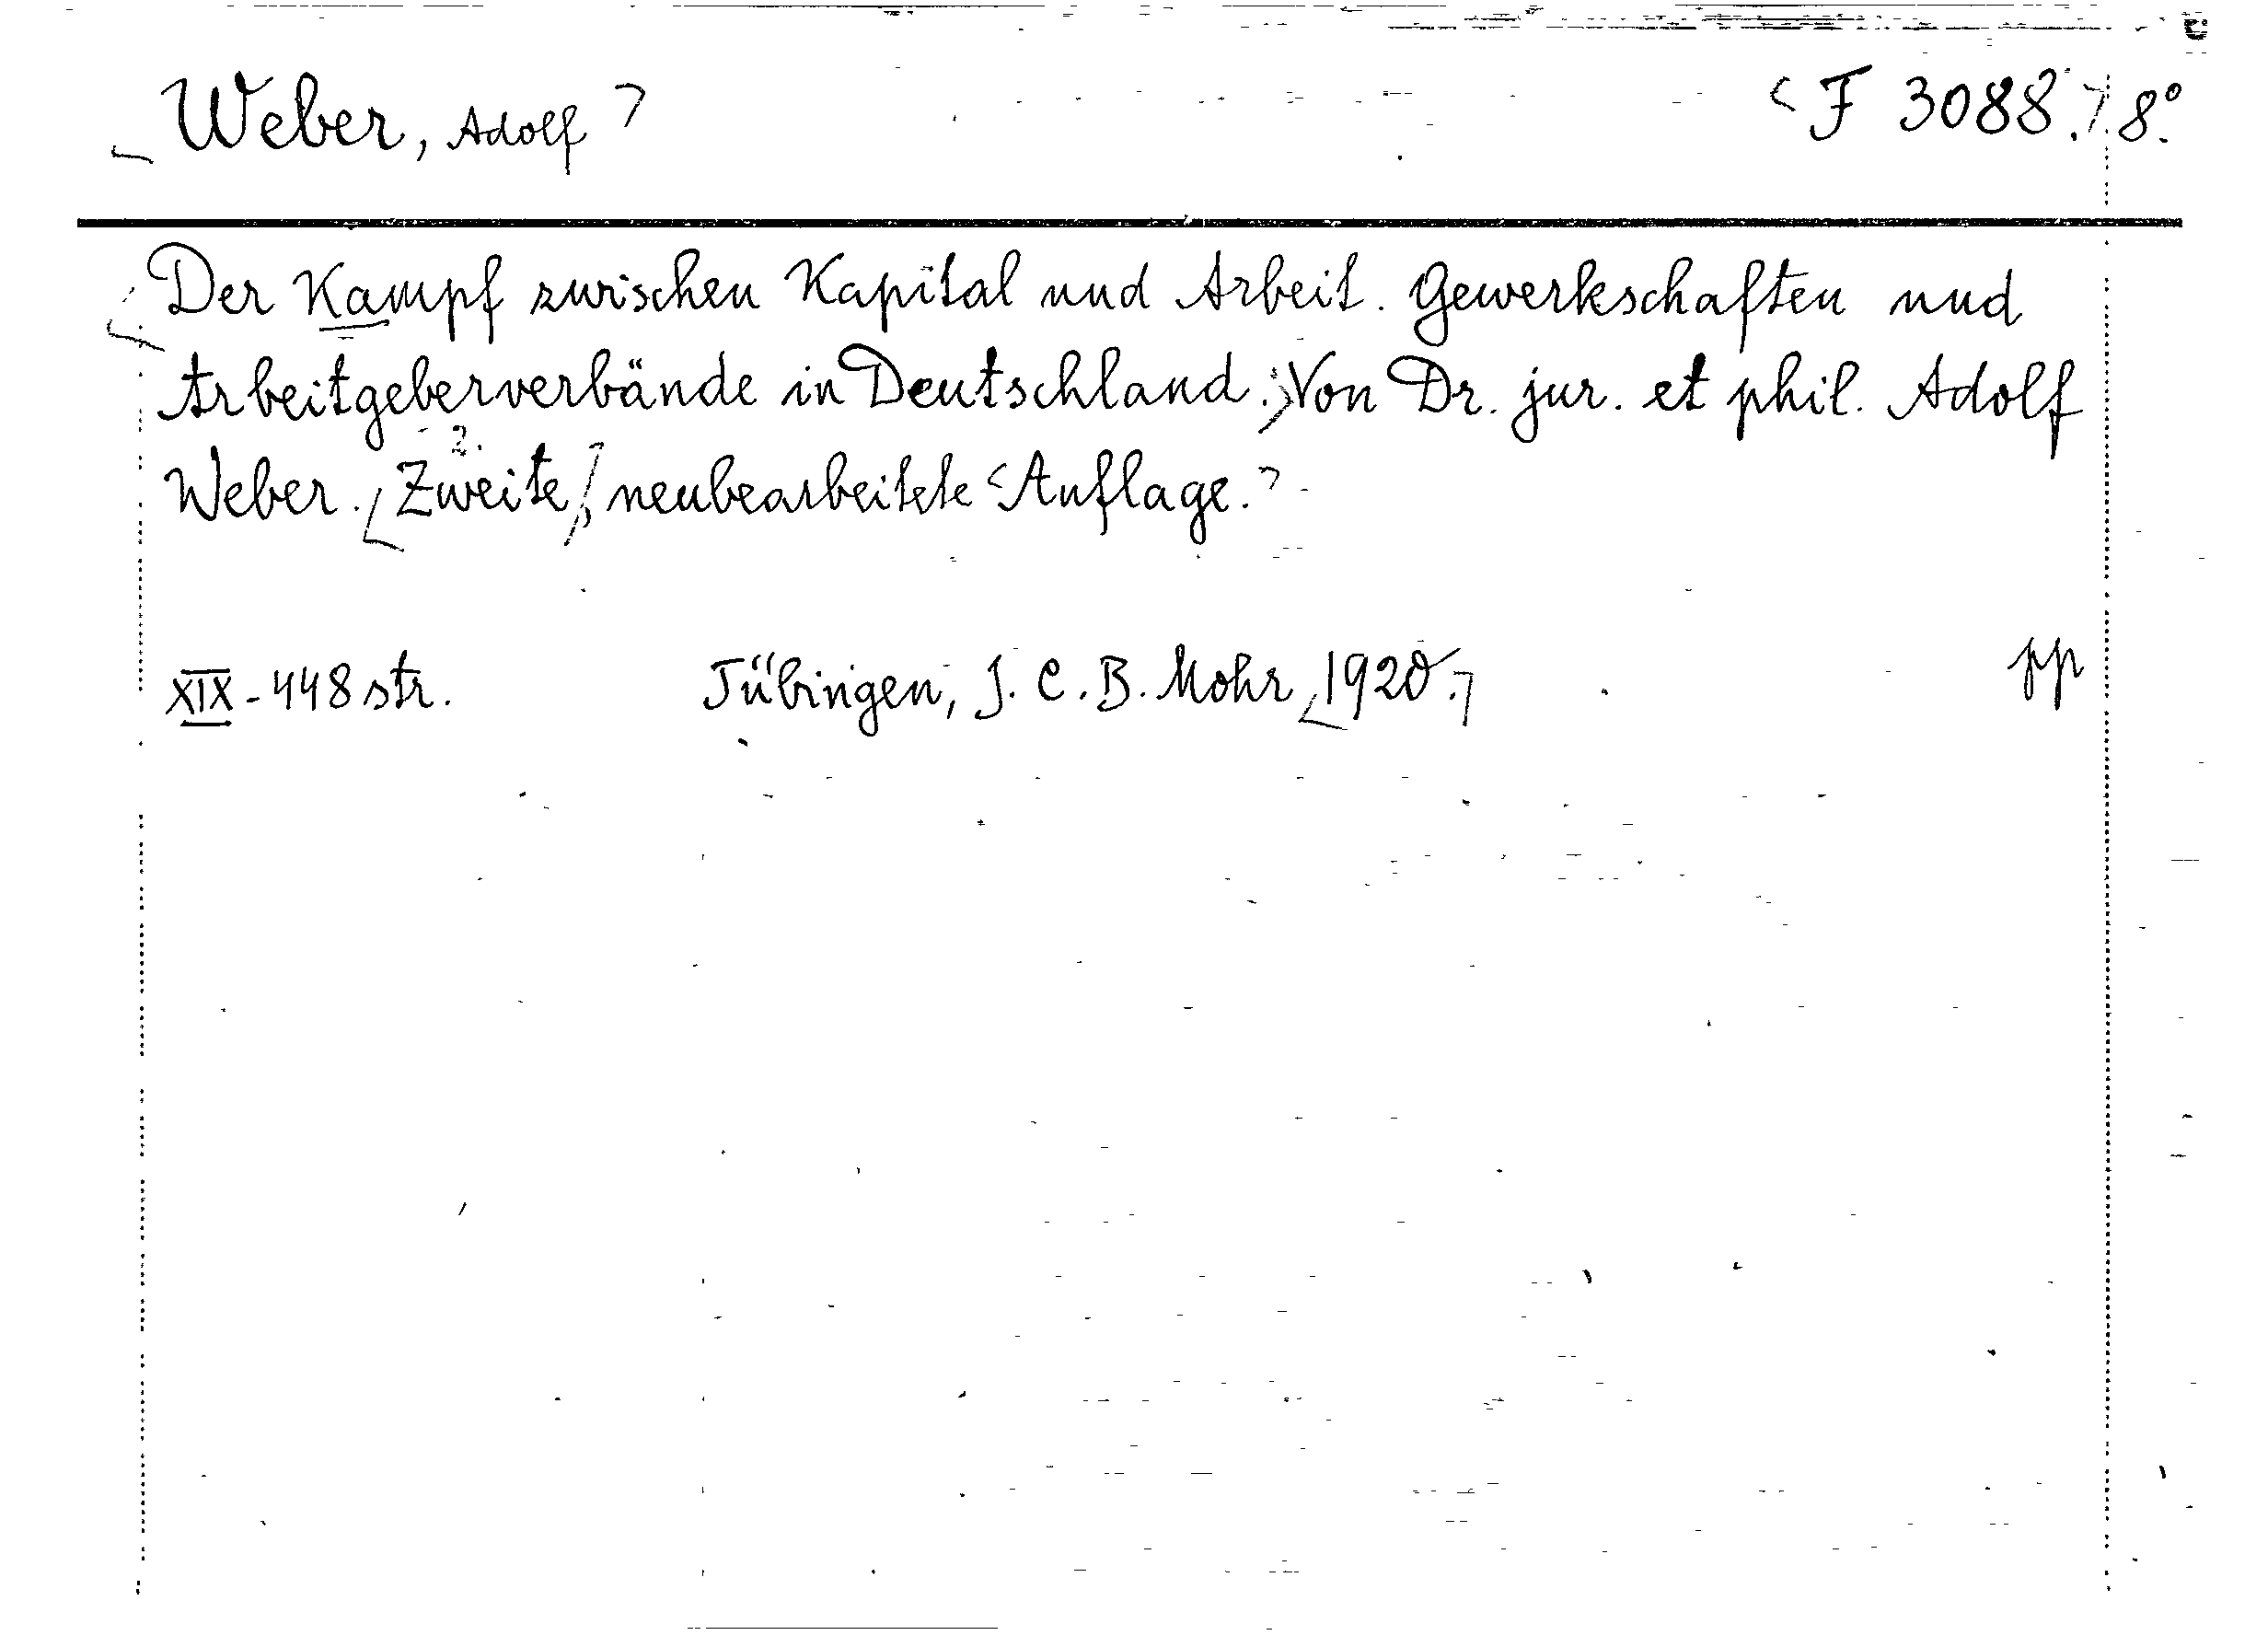 Weber, Adolf F 3088. 8°.
Der Kampf zwischen Kapital und Arbeit. Gewerkschaften und
Arbeitgeberverbände in Deutschland. Von Dr. jur. et phil. Adolf
2.
Weber. Zweite, neubearbeitete Auflage.
XIX-448 str. Tübingen, J. C. B. Mohr, 1920. pp